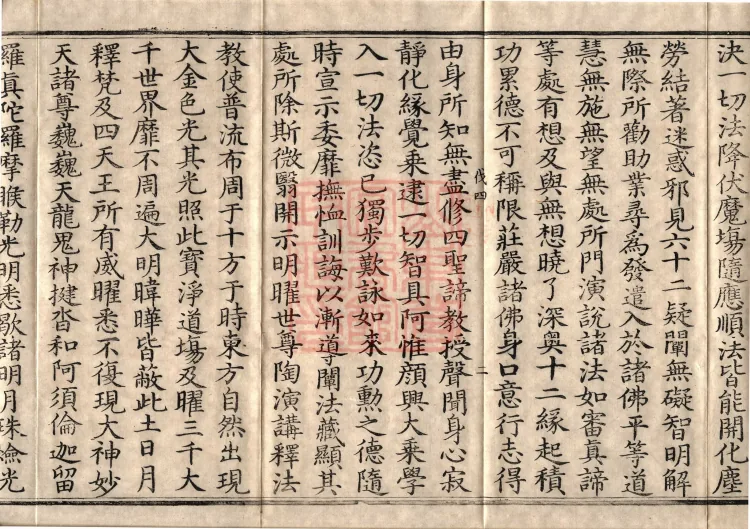 決一切法降伏魔塲隨應順法皆能開化塵
勞結著迷惑邪見六十二疑闡無礙智明解
無際所勸助業尋爲發遣入於諸佛平等道
慧無施無望無處所門演說諸法如審眞諦
等處有想及與無想曉了深奧十二緣起積
功累德不可稱限莊嚴諸佛身口意行志得
伐四
二
由身所知無盡修四聖諦教授聲聞身心寂
靜化緣覺乘逮一切智具阿惟顔興大乘學
入一切法恣已獨步歎詠如來功勲之德隨
時宣示委靡撫恤訓誨以漸導闡法藏顯其
處所除斯微翳開示明曜世尊陶演講釋法
教使普流布周于十方于時東方自然出現
大金色光其光照此寶淨道塲及曜三千大
千世界靡不周遍大明暐曄皆蔽此土日月
釋梵及四天王所有威曜悉不復現大神妙
天諸尊巍巍天龍鬼神揵沓和阿須倫迦留
羅眞陀羅摩睺勒光明悉歇諸明月珠燄光